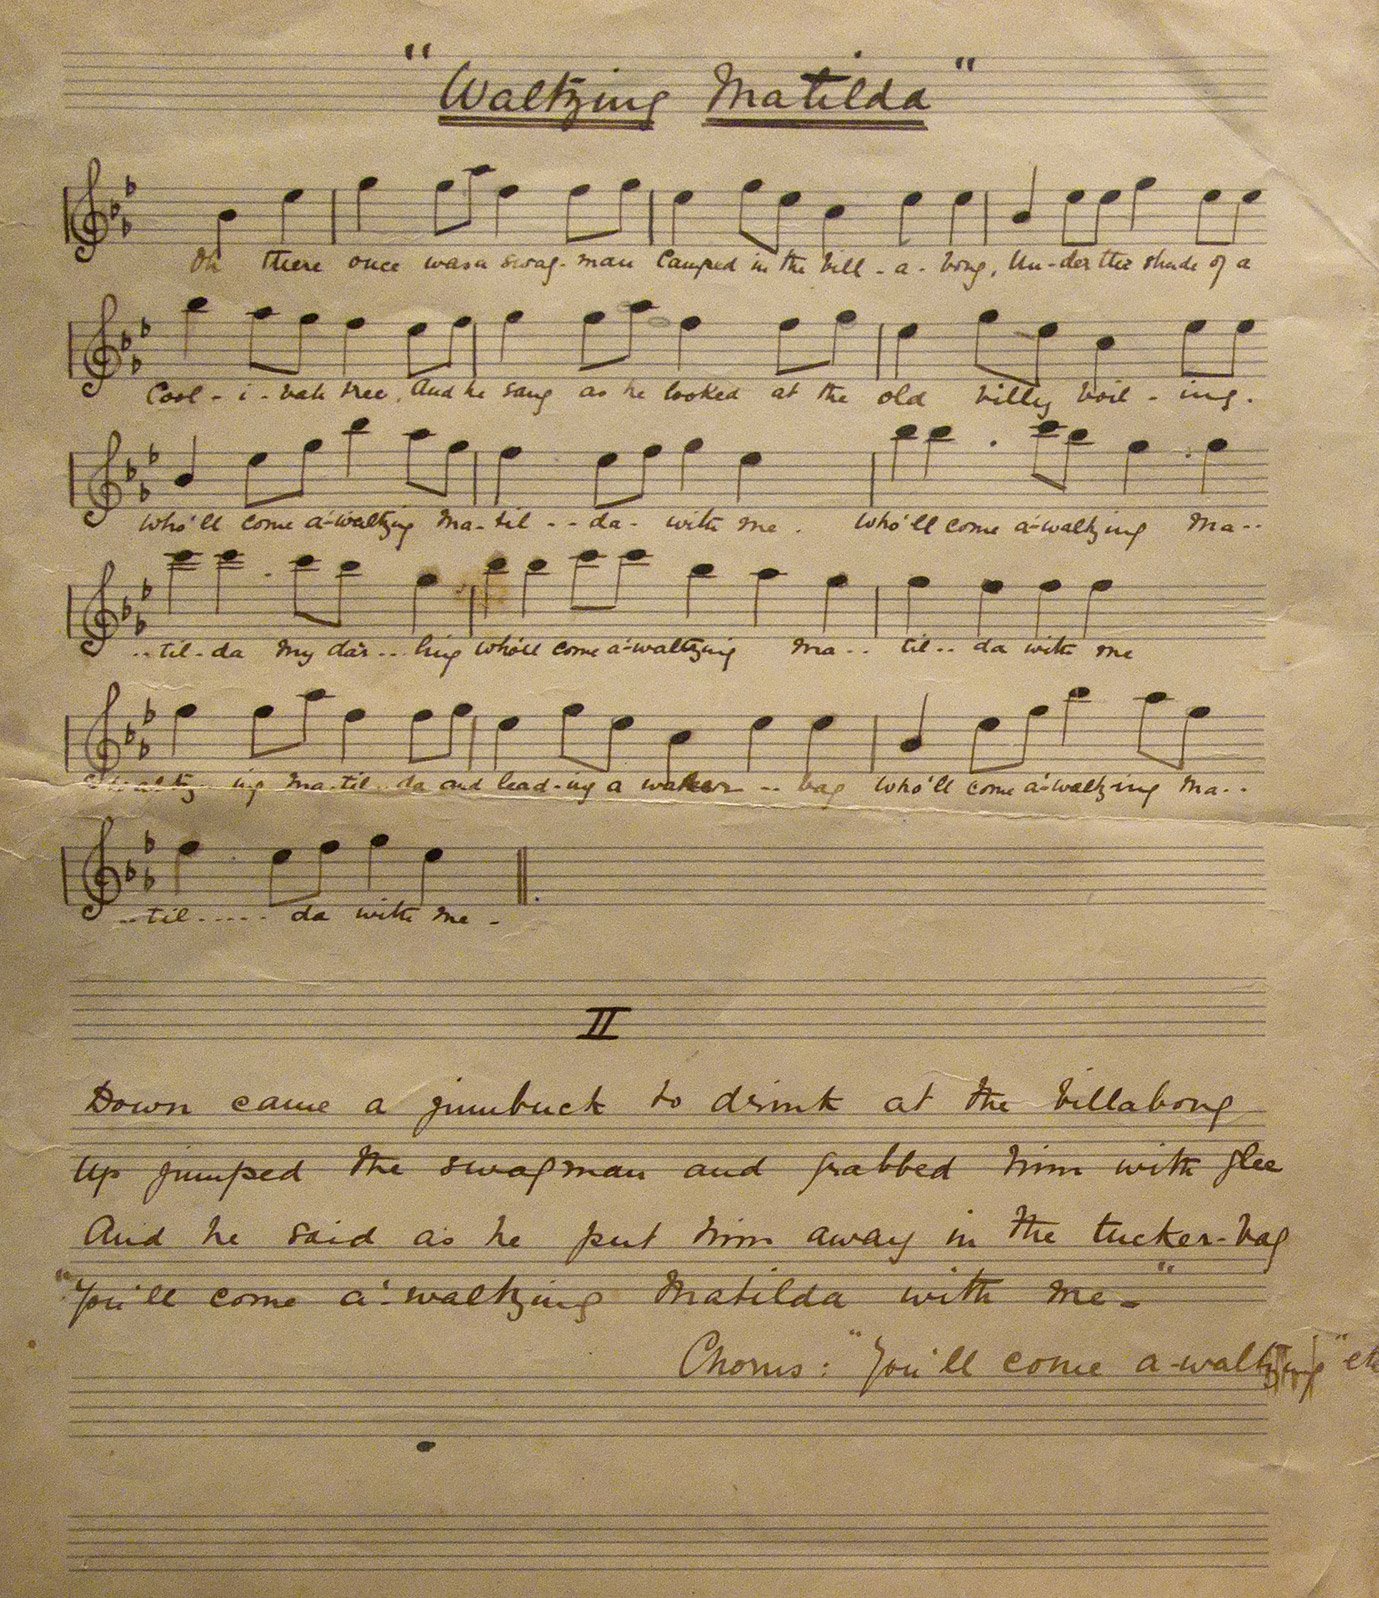 "Waltzing Matilda"
Oh there once was a swag-man camped in the bill-a-bong, Un-der the shade of a
Cool-i-bah tree, And he sang as he looked at the old billy boil-ing.
Who'll come a'-waltzing Ma-til--da- with me. Who'll come a'-waltzing Ma--
--til-da my dar--ling who'll come a'-waltzing Ma--til--da with me
Waltz-ing Ma-til--da and lead-ing a water--bag Who'll come a'-waltz-ing Ma--
--til----- da with me-
II
Down came a jumbuck to drink at the billabong
Up jumped the swagman and grabbed him with glee
And he said as he put him away in the tucker-bag
"You'll come a'-waltzing Matilda with me-"
Chorus: "You'll come a-waltzing" etc